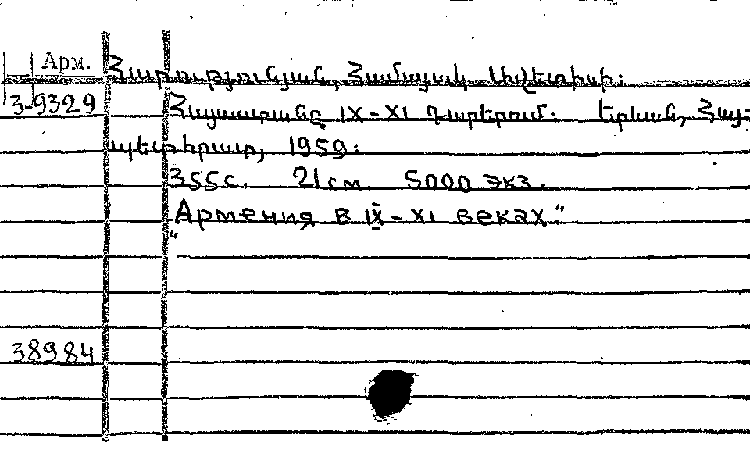 Арм.
Հարությունյան, Համայակ Ավետիսի:
3-9329
Հայաստանը IX-XI դարերում. Երևան, Հայ-
պետհրատ, 1959:
355с. 21см. 5000 экз.
"Армения в IX-XI веках."
38984